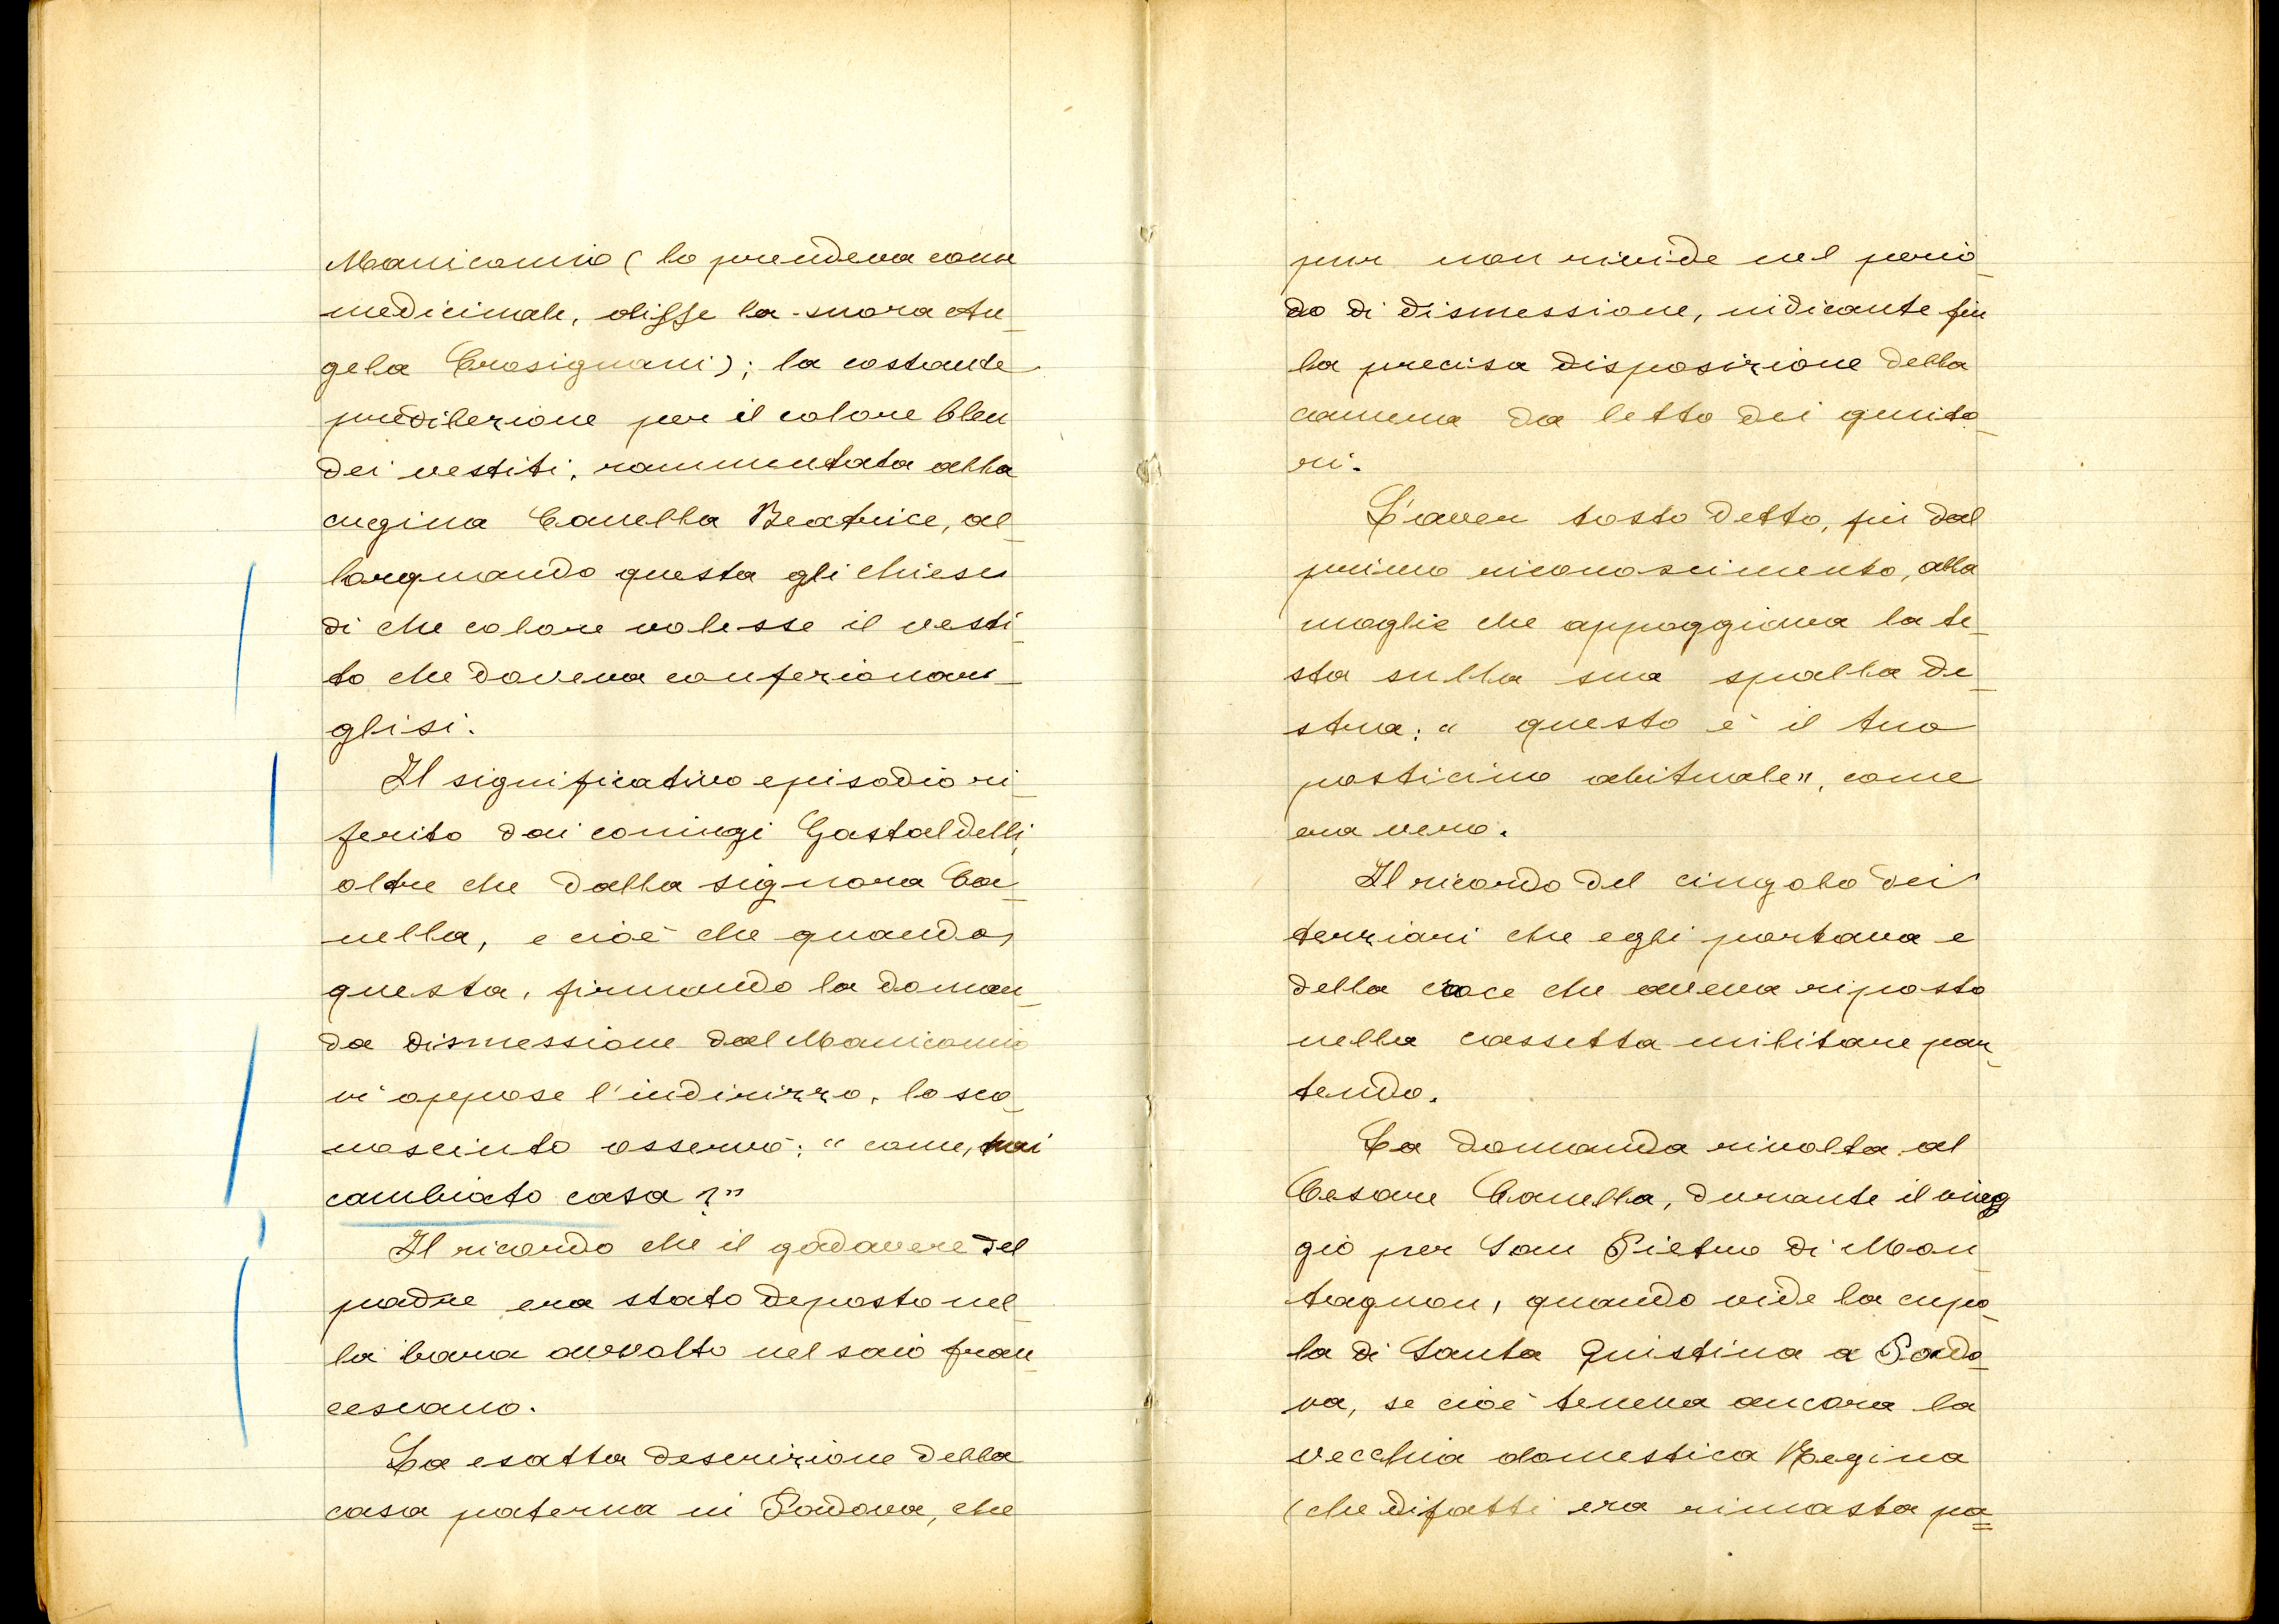 Manicomio (lo prendeva come
medicinale, disse la suora An_
gela Crosignani); la costante
predilezione per il colore bleu
dei vestiti, rammentata alla
cugina Canella Beatrice, al_
lorquando questa gli chiese
di che colore volesse il vesti_
to che doveva confezionar_
glisi.
Il significativo episodio ri_
ferito dai coniugi Gastaldelli,
oltre che dalla signora Ca_
nella, e cioè che quando,
questa, firmando la doman_
da dismessione dal Manicomio
vi appose l'indirizzo, lo sco_
nosciuto osservò: "come, hai
cambiato casa?"
Il ricordo che il cadavere del
padre era stato deposto nel_
la bara avvolto nel saio fran_
cescano.
La esatta descrizione della
casa paterna in Padova, che
pur non rivide nel perio_
do di dismessione, indicante fin
la precisa disposizione della
camera da letto dei genito_
ri.
L'aver tosto detto, fin dal
primo riconoscimento, alla
moglie che appoggiava la te_
sta sulla sua spalla de_
stra: "questo è il tuo
posticino abituale", come
era vero.
Il ricordo del cingolo dei
terziari che egli portava e
della croce che aveva riposto
nella cassetta militare par_
tendo.
La domanda rivolta al
Cesare Canella, durante il viag
gio per San Pietro di Mon_
tagnon, quando vide la cupo_
la di Santa Giustina a Pado_
va, se cioè teneva ancora la
vecchia domestica Regina
(che difatti era rimasta pa=